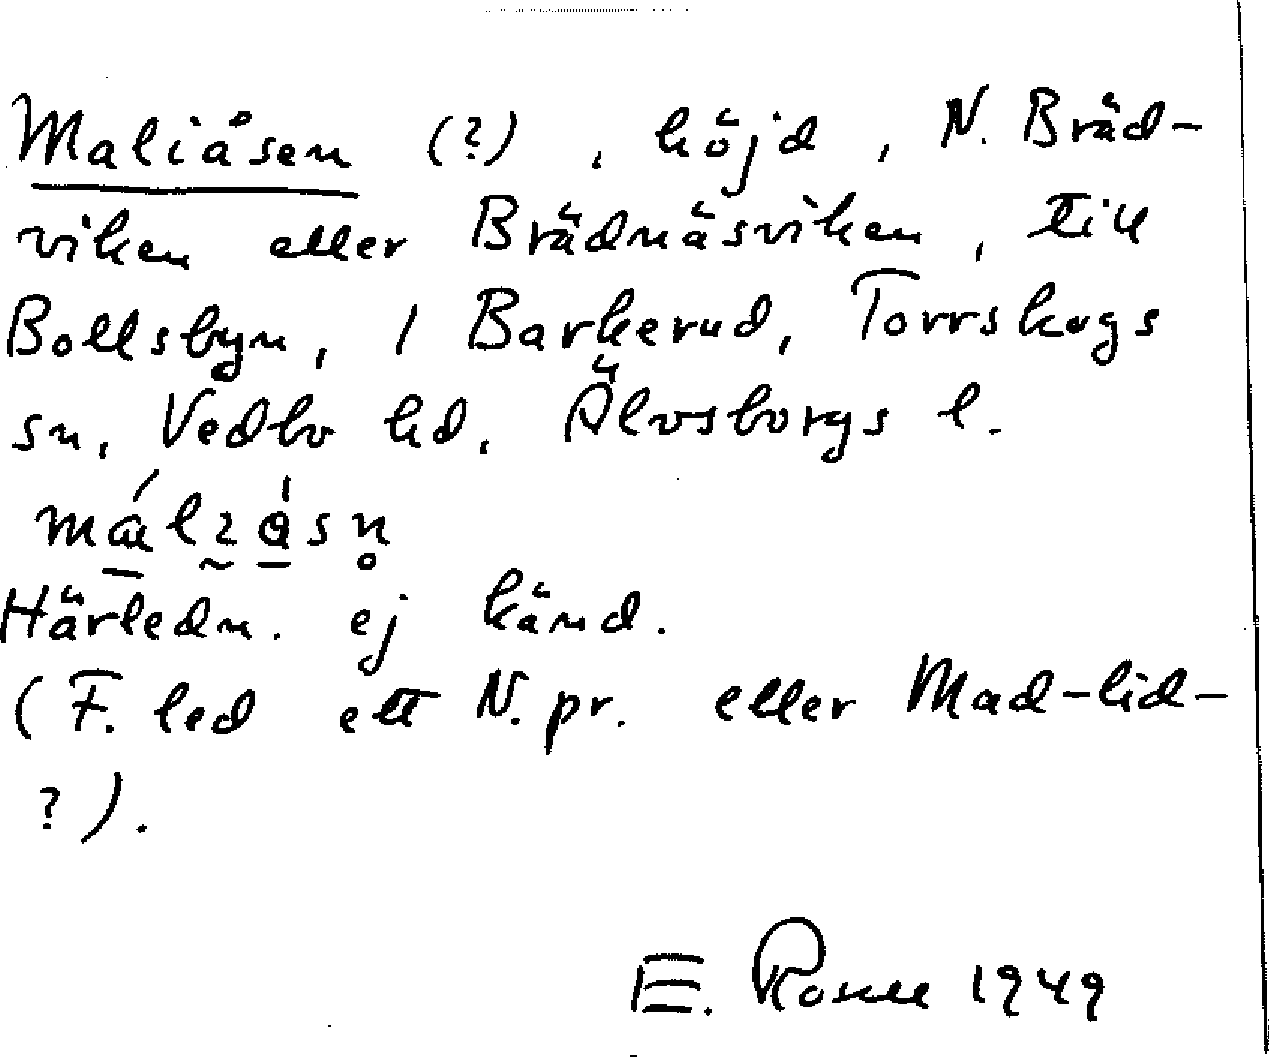 Maliåsen (?), höjd, N. Bräd-
viken eller Brädnäsviken, till
Bollsbyn, 1 Barkerud, Torrskogs
sn, Vedbo hd, Älvsborgs l.
Härledn. ej känd.
(F. led ett N. pr. eller Mad-lid-
?).
E. 1949